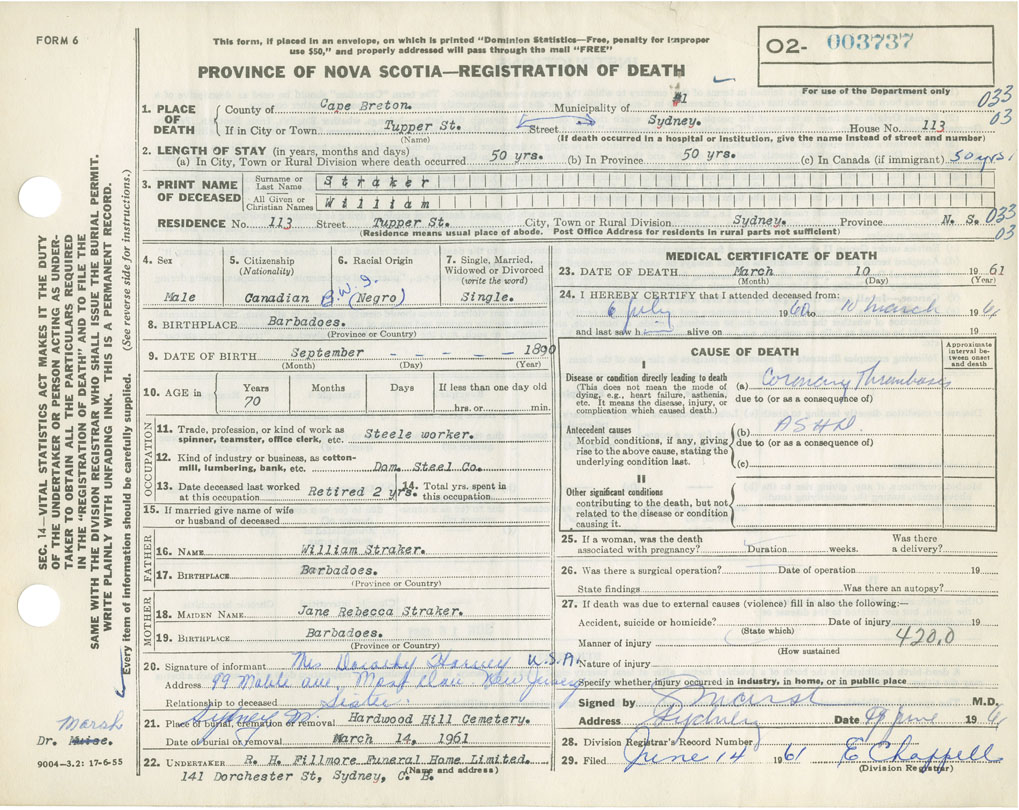 FORM 6
This form, if placed in an envelope, on which is printed "Dominion Statistics—Free, penalty for improper
use $50," and properly addressed will pass through the mail "FREE"
O2- 003737
For use of the Department only
PROVINCE OF NOVA SCOTIA—REGISTRATION OF DEATH
1. PLACE OF DEATH County of Cape Breton. Municipality of #1 033
If in City or Town Tupper St. Street Sydney. House No. 113 03
(Name) (If death occurred in a hospital or institution, give the name instead of street and number)
2. LENGTH OF STAY (in years, months and days)
(a) In City, Town or Rural Division where death occurred 50 yrs. (b) In Province 50 yrs. (c) In Canada (if immigrant) 50 yrs.
3. PRINT NAME OF DECEASED Surname or Last Name Straker
All Given or Christian Names William
RESIDENCE No. 113 Street Tupper St. City, Town or Rural Division Sydney. Province N. S. 033
(Residence means usual place of abode. Post Office Address for residents in rural parts not sufficient) 03
4. Sex Male
5. Citizenship (Nationality) Canadian
6. Racial Origin B.W.I. (Negro)
7. Single, Married, Widowed or Divorced (write the word) Single.
8. BIRTHPLACE Barbadoes.
(Province or Country)
9. DATE OF BIRTH September - - - - - 1890
(Month) (Day) (Year)
10. AGE in Years 70 Months Days If less than one day old hrs. or min.
OCCUPATION
11. Trade, profession, or kind of work as spinner, teamster, office clerk, etc. Steele worker.
12. Kind of industry or business, as cotton-mill, lumbering, bank, etc. Dom. Steel Co.
13. Date deceased last worked at this occupation Retired 2 yrs. 14. Total yrs. spent in this occupation
15. If married give name of wife or husband of deceased
FATHER
16. NAME William Straker.
17. BIRTHPLACE Barbadoes.
(Province or Country)
MOTHER
18. MAIDEN NAME Jane Rebecca Straker.
19. BIRTHPLACE Barbadoes.
(Province or Country)
20. Signature of informant Mrs Dorothy Harvey U.S.A.
Address 99 Ave, New Jersey
Relationship to deceased Sister
21. Place of burial, cremation or removal Sydney Hardwood Hill Cemetery.
Date of burial or removal March 14, 1961
22. UNDERTAKER R. H. Fillmore Funeral Home Limited.
(Name and address)
141 Dorchester St, Sydney, C. B.
MEDICAL CERTIFICATE OF DEATH
23. DATE OF DEATH March 10 1961
(Month) (Day) (Year)
24. I HEREBY CERTIFY that I attended deceased from:
6 July 1960 to 10 March 1961
and last saw him alive on 19
CAUSE OF DEATH
Approximate interval between onset and death
I
Disease or condition directly leading to death
(This does not mean the mode of dying, e.g., heart failure, asthenia, etc. It means the disease, injury, or complication which caused death.)
(a) Coronary Thrombosis
due to (or as a consequence of)
Antecedent causes
Morbid conditions, if any, giving rise to the above cause, stating the underlying condition last.
(b) ASHD.
due to (or as a consequence of)
(c)
II
Other significant conditions
contributing to the death, but not related to the disease or condition causing it.
25. If a woman, was the death associated with pregnancy? Duration weeks. Was there a delivery?
26. Was there a surgical operation? Date of operation 19
State findings Was there an autopsy?
27. If death was due to external causes (violence) fill in also the following:—
Accident, suicide or homicide? Date of injury 19
(State which)
Manner of injury 420.0
(How sustained)
Nature of injury
Specify whether injury occurred in industry, in home, or in public place
Signed by Marsh M.D.
Address Sydney Date June 1961
28. Division Registrar's Record Number
29. Filed June 14 1961 E Chappell
(Division Registrar)
SEC. 14—VITAL STATISTICS ACT MAKES IT THE DUTY
OF THE UNDERTAKER OR PERSON ACTING AS UNDER-
TAKER TO OBTAIN ALL THE PARTICULARS REQUIRED
IN THE "REGISTRATION OF DEATH" AND TO FILE THE
SAME WITH THE DIVISION REGISTRAR WHO SHALL ISSUE THE BURIAL PERMIT.
WRITE PLAINLY WITH UNFADING INK. THIS IS A PERMANENT RECORD.
Every item of information should be carefully supplied. (See reverse side for instructions.)
Marsh
Dr. Muise.
9004—3.2: 17-6-55